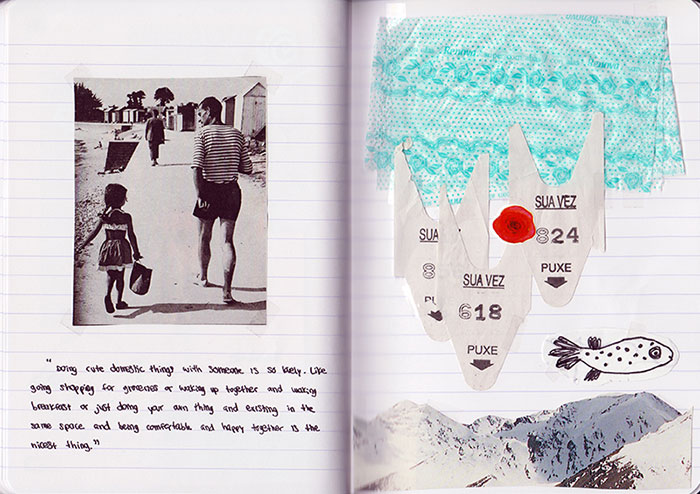 "Doing cute domestic things with someone is so lovely. Like
going shopping for groceries or waking up together and making
breakfast or just doing your own thing and existing in the
same space and being comfortable and happy together is the
nicest thing."
SUA VEZ
824
PUXE
SUA
8
PU
SUA VEZ
618
PUXE